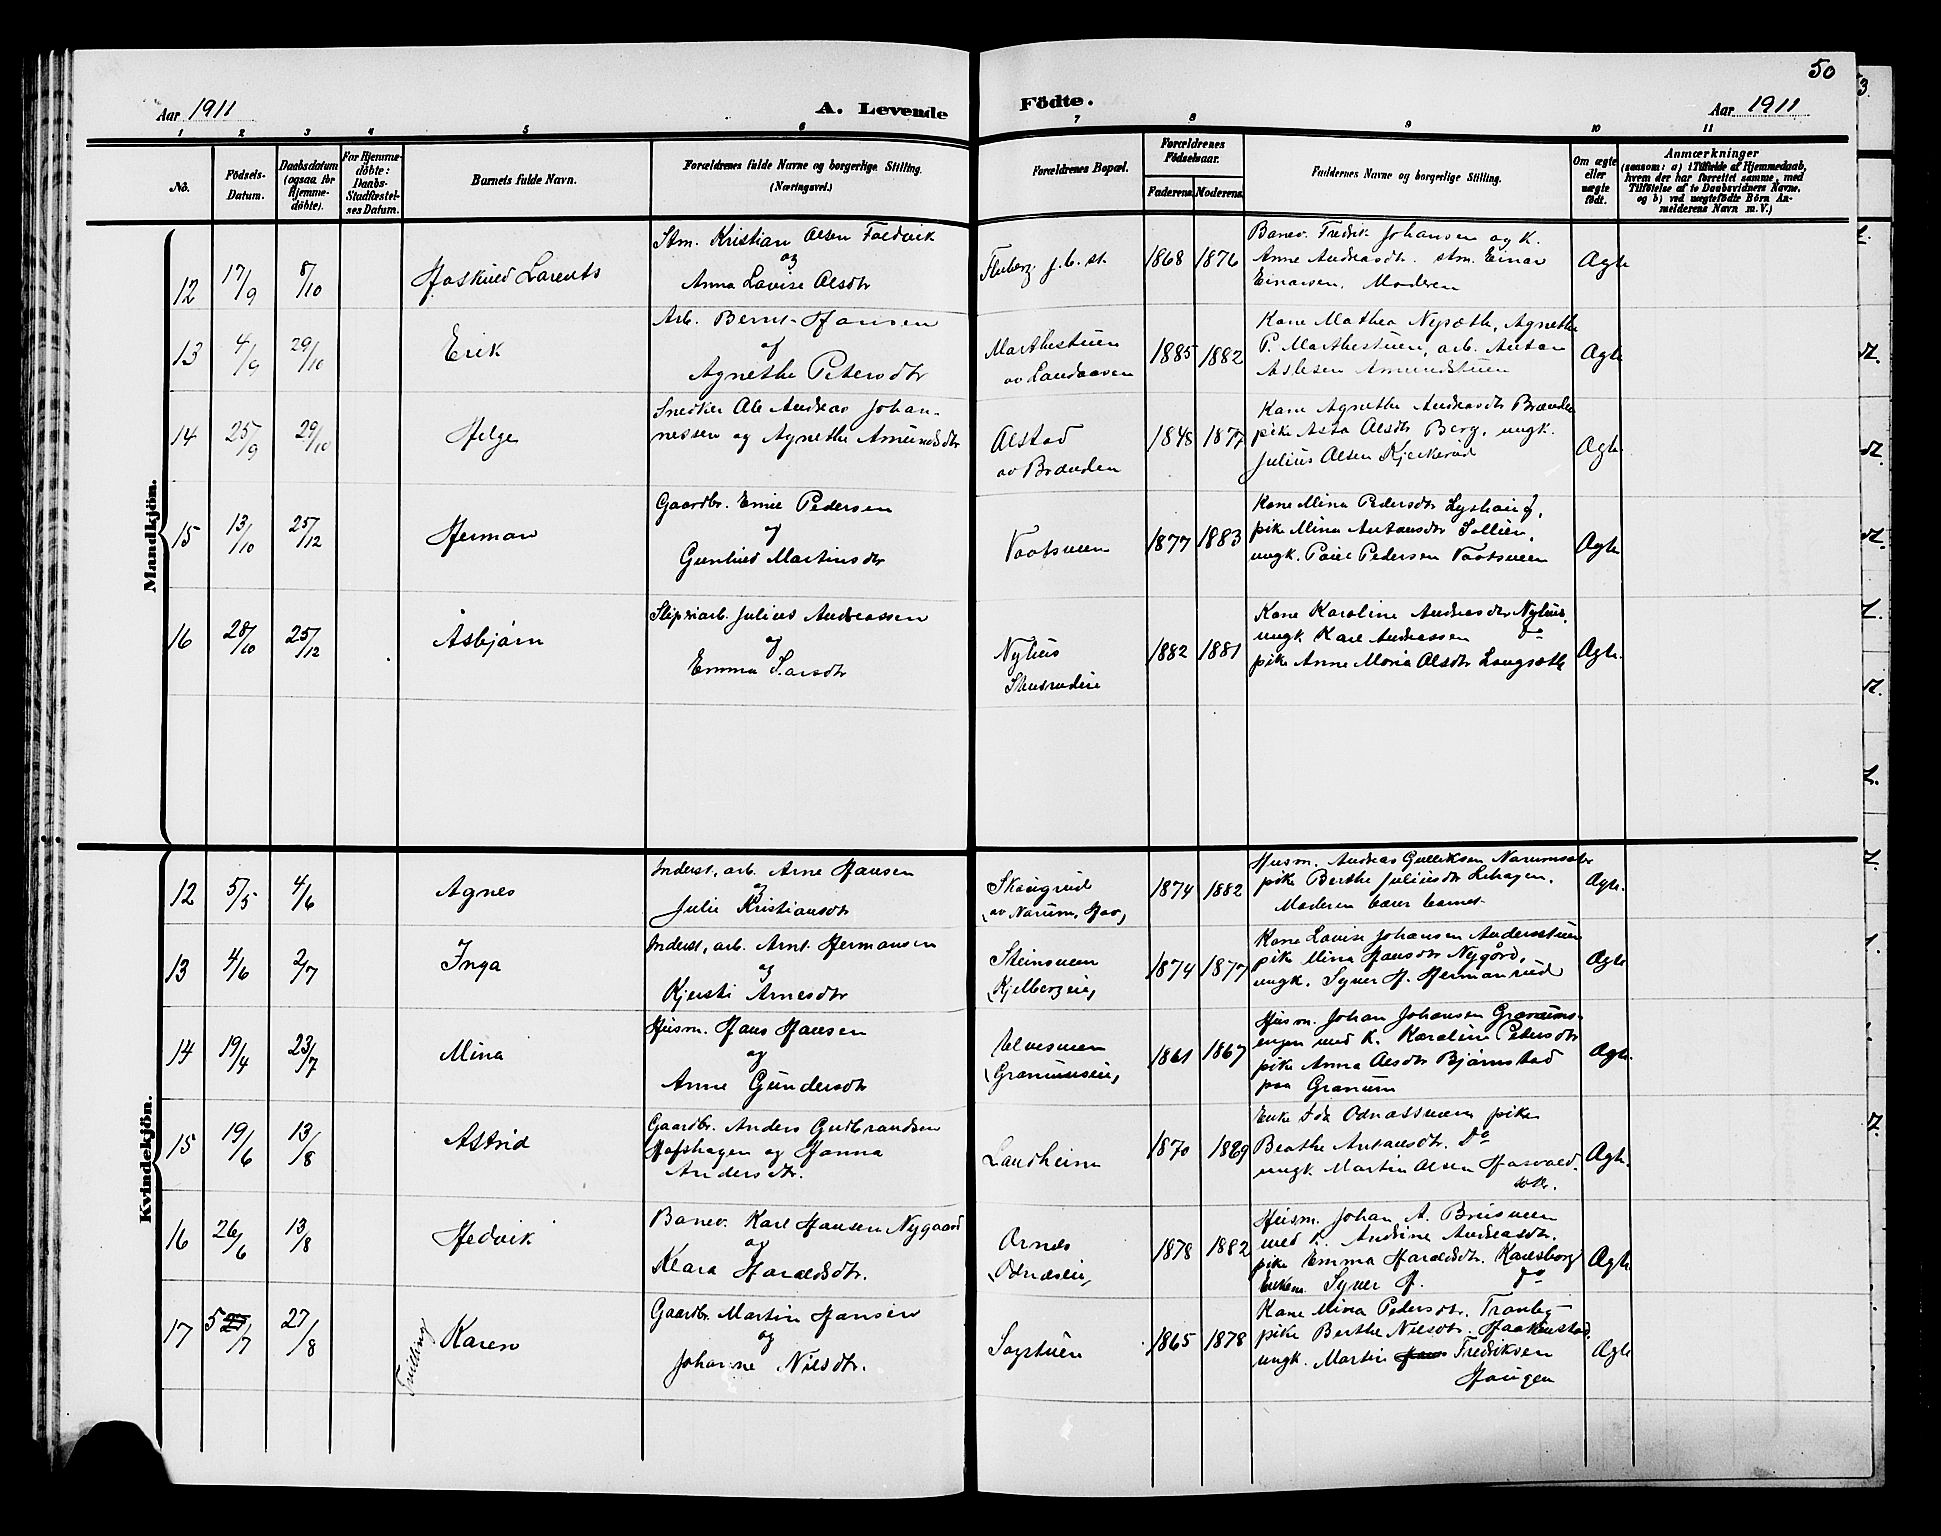 50
Aar 1911
A. Levende Födte.
Aar 1911
1 2 3 4 5 6 7 8 9 10 11
No.
Födsels-Datum.
Daabsdatum (ogsaa for Hjemme-döbte).
For Hjemme-döbte: Daabs-Stadfæstel-ses Datum.
Barnets fulde Navn.
Forældrenes fulde Navne og borgerlige Stilling.
(Næringsvei.)
Forældrenes Bopæl.
Forældrenes Födselsaar.
Faderens. Moderens.
Faddernes Navne og borgerlige Stilling.
Om ægte eller uægte födt.
Anmærkninger
(saasom: a) i Tilfælde af Hjemmedaab,
hvem der har forrettet samme, med
Tilföielse af to Daabsvidners Navne,
og b) ved uægtefödte Börn An-
melderens Navn m. V.)
Mandkjön.
12 17/9 8/10 Haskild Larents
Stm. Kristian Olsen Faldvik
og
Anna Lovise Olsdtr
Fluberg j.b. st. 1868 1876
Banev. Fredrik Johansen og K.
Anne Andreasdtr. stm. Einar
Einarsen, Moderen
Ægte
13 4/9 29/10 Erik
Arb. Bernt Hansen
og
Agnethe Petersdtr
Marthestuen
av Landaasen
1885 1882
Kone Mathea Nysæth, Agnethe
P. Marthestuen, arb. Anton
Aslesen Amundstuen
Ægte
14 25/9 29/10 Helge
Snedker Ole Andreas Johan-
nessen og Agnethe Amundsdtr
Alstad
av Brænden
1848 1877
Kone Agnethe Andreasdtr Brænden
pike Asta Olsdtr Berg, ungk.
Julius Olsen Kjekerud
Ægte
15 13/10 25/12 Herman
Gaardbr. Emil Pedersen
og
Gunhild Martinsdtr
Vootsveen 1877 1883
Kone Mina Pedersdtr Lyshaug,
pike Mina Antonsdtr Sollien,
ungk. Paul Pedersen Vootsveen
Ægte
16 28/10 25/12 Åsbjørn
Slipriarb. Julius Andreassen
og
Emma Larsdtr
Nyhus
Skudsrudeie
1882 1881
Kone Karoline Andreasdtr Nyhus,
ungk Karl Andreassen Do
pike Anne Maria Olsdtr Langsæth
Ægte.
Kvindekjön.
12 5/5 4/6 Agnes
Inderst, arb. Arne Hansen
og
Julie Kristiansdtr
Skaugrud
(av Narum, Hov)
1874 1882
Husm. Andreas Gulliksen Narumsæter
pike Berthe Juliusdtr Lehagen.
Moderen bærer barnet
Ægte.
13 4/6 2/7 Inga
Inderst, arb. Arnt Hermansen
og
Kjersti Arnesdtr
Steinsveen
(Kjelbergeie)
1874 1877
Kone Lovise Johansen Anderstuen
pike Mina Hansdtr Nygård,
ungk. Syver H. Hermanrud
Ægte
14 19/4 23/7 Mina
Husm. Hans Hansen
og
Anne Gundersdtr
Elvesveen
(Granumseie)
1861 1867
Husm. Johan Johansen Granums-
engen med K. Karoline Petersdtr
pike Anna Olsdtr Bjørnstad
paa Granum
Ægte.
15 19/6 13/8 Astrid
Gaardbr. Anders Gulbrandsen
Hofshagen og Hanna
Andersdtr.
Landheim 1870 1869
Enke Ida Odnæssveen pike
Berthe Antonsdtr. Do
ungk. Martin Olsen Hasvold.
sk.
Ægte.
16 26/6 13/8 Hedvik
Banev. Karl Hansen Nygaard
og
Klara Haraldsdtr.
Ornes
(Odnæseie)
1878 1882
Husm. Johan A. Bruisveen
med k. Andrine Andreasdtr.
pike Emma Haraldsdtr. Karlsborg
Enkem Syver H. Do
Ægte.
17 5/7 27/8 Trilling Karen
Gaardbr. Martin Hansen
og
Johanne Nilsdtr.
Sagstuen 1865 1878
Kone Mina Pedersdtr. Tranby
pike Berthe Nilsdtr. Haakenstad.
ungk. Martin Fredriksen
Haugen
Ægte